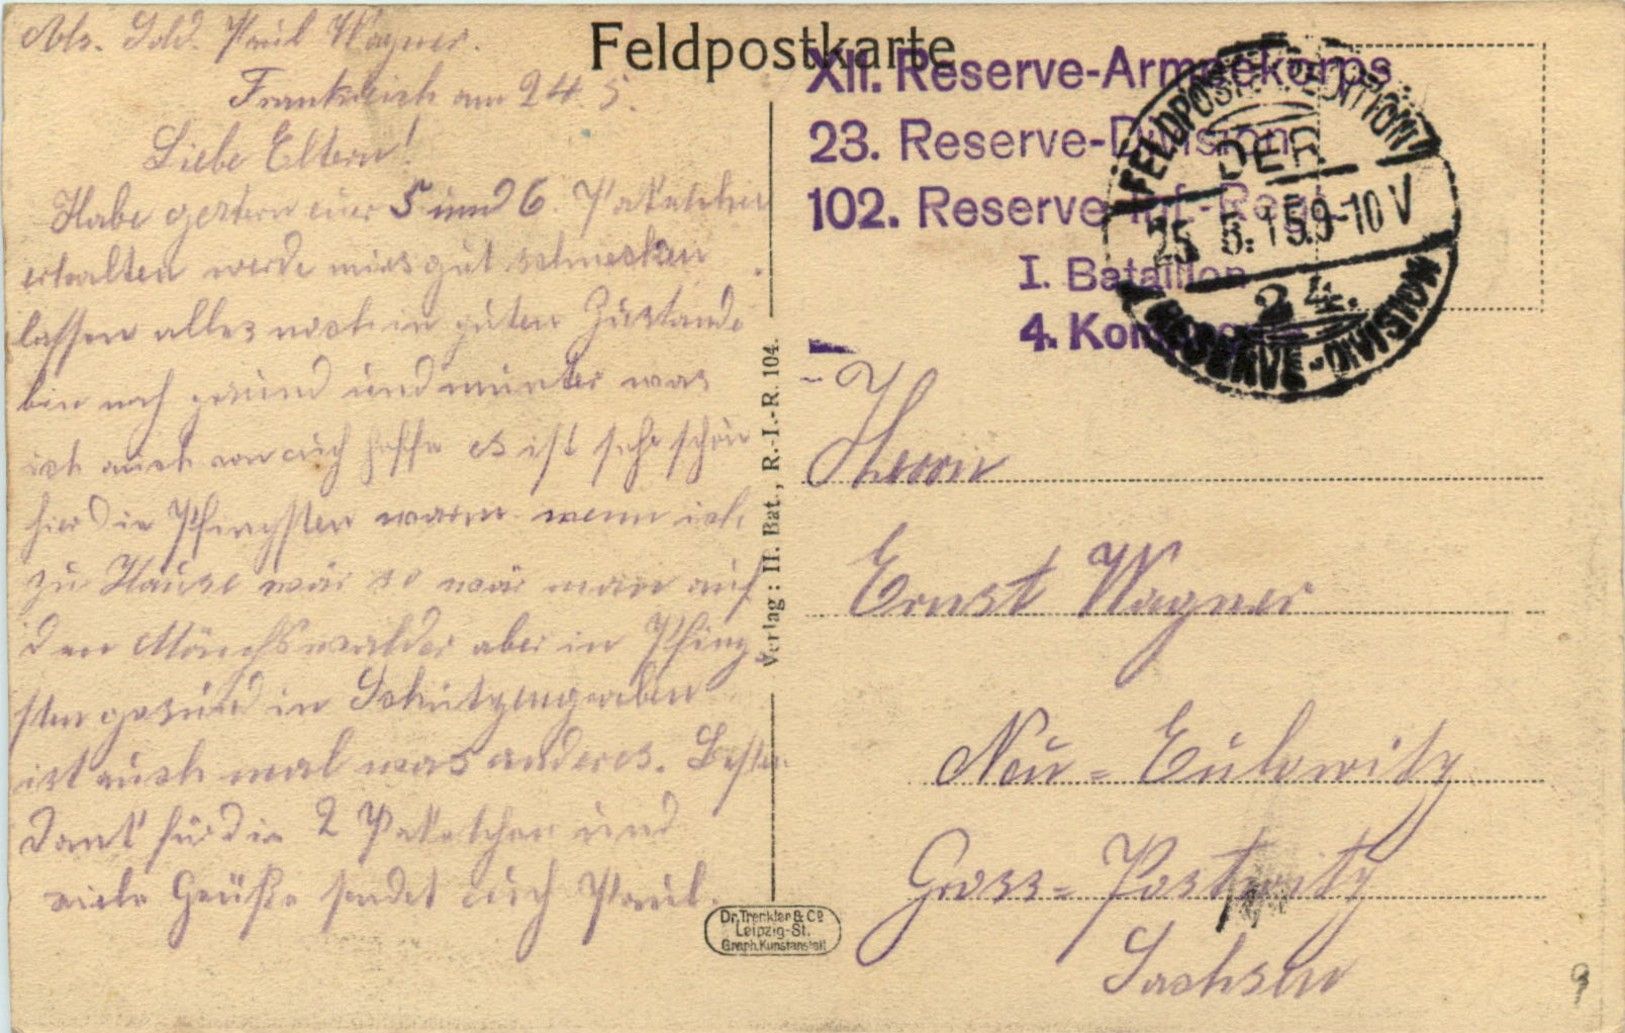 Abs. Sold. Paul Wagner.
Frankreich am 24. 5.
Liebe Eltern!
Habe gestern euer 5 und 6. Paketchen
erhalten werde mirs gut schmecken
lassen alles noch in guten Zustande
bin noch gesund und munter was
ich auch von euch hoffe es ist sehr schön
hier die Pfingsten warm wenn ich
zu Hause wär so wär man auf
den Mönchswalder aber in Pfing
sten gesund in Schützengraben
ist auch mal was anderes. Besten
Dank für die 2 Paketchen und
viele Grüße sendet euch Paul.
Verlag: II. Bat., R.-I.-R. 104.
Dr. Trenkler & Co
Leipzig-St.
Graph. Kunstanstalt
Feldpostkarte
XII. Reserve-Armeekorps
23. Reserve-Division
102. Reserve-Inf.-Regt.
I. Bataillon
4. Komp
FELDPOSTEXPEDITION
DER
25 5. 15. 9-10 V
24.
RESERVE-DIVISION
Herrn
Ernst Wagner
Neu-Eulowitz
Gross-Postwitz
Sachsen
9